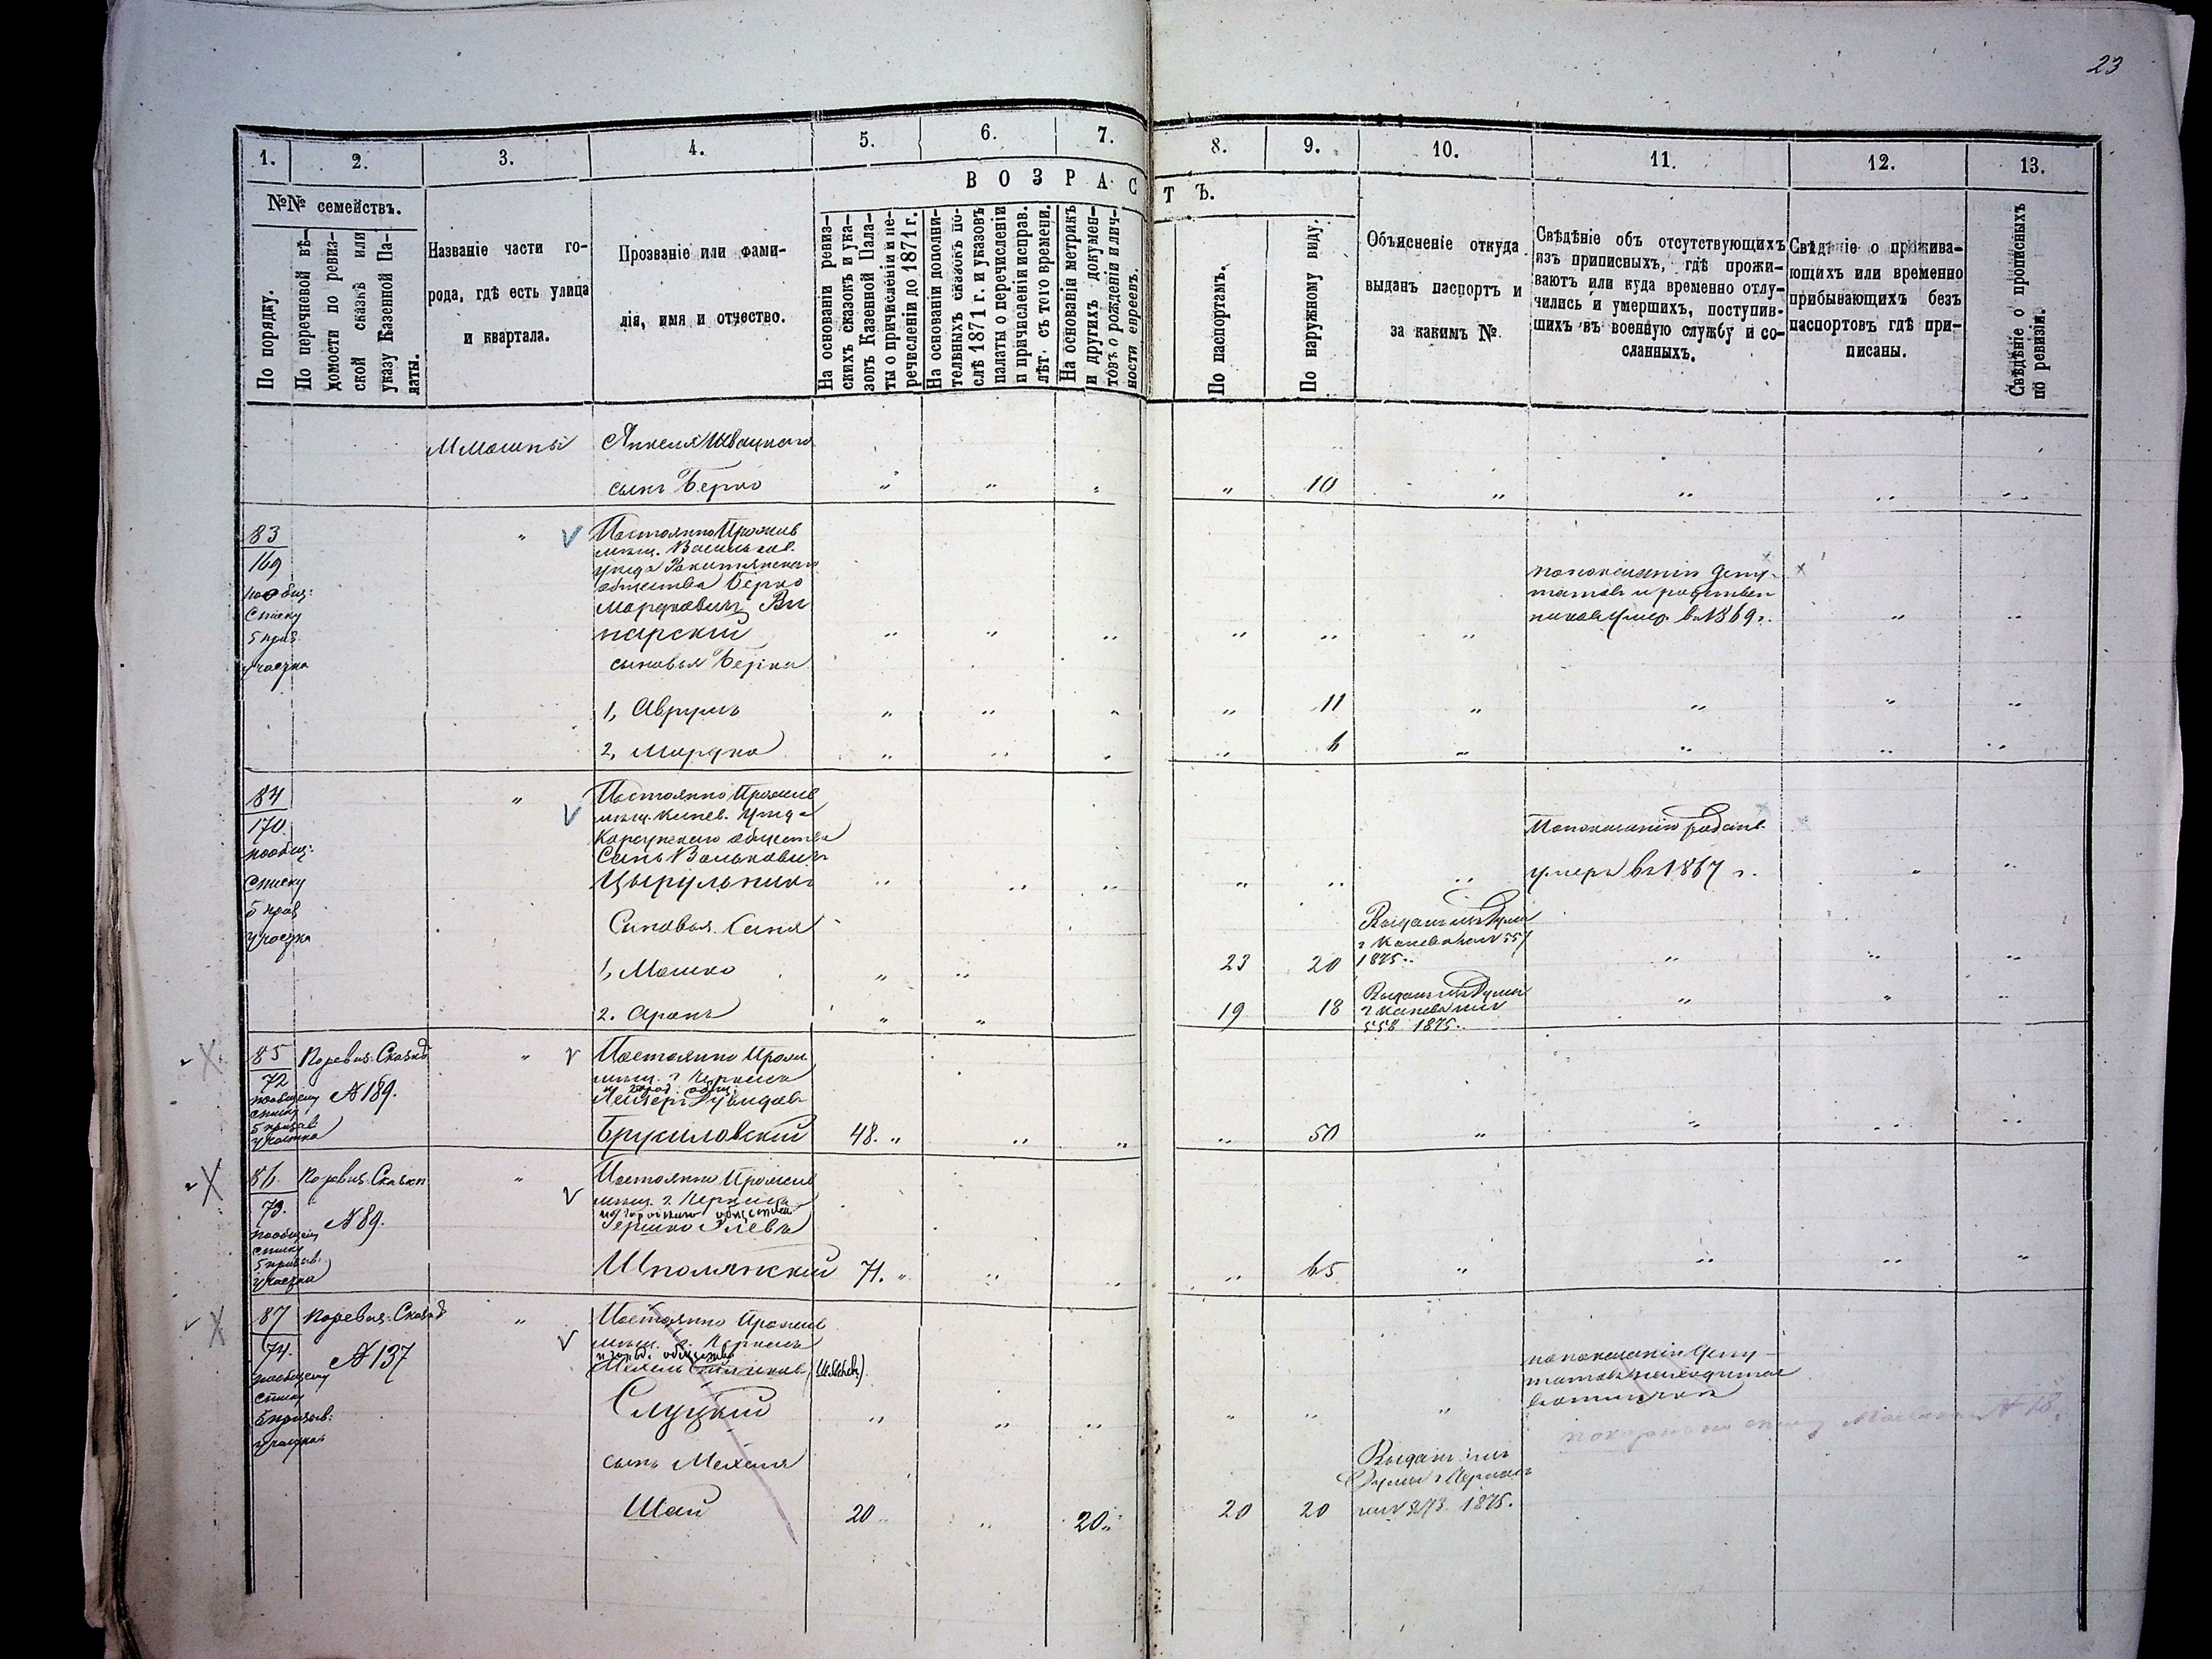 23
1.
2.
3.
4.
5.
6.
7.
8.
9.
10.
11.
12.
13.
№№ семействъ.
По порядку.
По перечневой вѣ-
домости по ревиз-
ской сказкѣ или
указу Казенной Па-
латы.
Названіе части го-
рода, гдѣ есть улица
и квартала.
Прозваніе или фами-
лія, имя и отчество.
ВОЗРАСТЪ.
На основаніи ревиз-
скихъ сказокъ и ука-
зовъ Казенной Пала-
ты о причисленіи и пе-
речисленіи до 1871 г.
На основаніи дополни-
тельныхъ сказокъ по-
слѣ 1871 г. и указовъ
палаты о перечисленіи
и причисленіи исправ.
лѣт. съ того времени.
На основаніи метрикъ
и другихъ докумен-
товъ о рожденіи и лич-
ности евреевъ.
По паспортамъ.
По наружному виду.
Объясненіе откуда
выданъ паспортъ и
за какимъ №.
Свѣдѣніе объ отсутствующихъ
изъ приписныхъ, гдѣ прожи-
ваютъ или куда временно отлу-
чились и умершихъ, поступив-
шихъ въ военную службу и со-
сланныхъ.
Свѣдѣніе о прожива-
ющихъ или временно
прибывающихъ безъ
паспортовъ гдѣ при-
писаны.
Свѣдѣніе о прописныхъ
по ревизіи.
М Мошны
сынъ Берко " " " " 10 " " " "
83
169
по общ:
списку
5 приз
участка
" V
Постоянно Прожив
мѣщ. Васильков.
уѣзда Ракитянскаго
общества Берко
Мордковичъ Ви
нарскій
по показанію депу-
татовъ и родствен
никовъ умер. въ 1869 г.
сыновья Берка
1, Аврумъ " " " " 11 " " " "
2, Мордко " " " " 6 " " " "
84
170
по общ:
списку
5 приз
участка
" V
Постоянно Прожив
мѣщ. Канев. Уѣзда
Корсунскаго общества
Сынъ Вольковичъ
Цырульникъ
По показанію родств.
умеръ въ 1867 г.
Сыновья
1, Мошко " " 23 20
Выданъ изъ Думы
г Канева за № 557
1875.
2. Аронъ " " 19 18
Выданъ изъ Думы
г Канева за №
558 1875.
85
72
по общему
списку
5 призыв
участка
По ревиз. Сказкѣ
№ 189.
" V
Постоянно Прожи
мѣщ. г Черкасъ
Брусиловскій 48. " " " " 50 " " " "
86.
73.
по общему
списку
5 призыв.
участка
По ревиз. Сказки
№ 89.
" V
Постоянно Прожив
мѣщ. г. Черкасъ
общества
Гершко
Шполянскій 71. " " " " 65 " " " "
87
74.
по общему
списку
5 призыв:
участка
По ревиз. Сказкѣ
№ 137
" V
Постоянно Прожив
мѣщ. г. Черкасъ
общества
Слуцкій
по показанію депу-
татовъ находится
сынъ Мехеля
Шая 20 " 20 " 20 20
Выданъ изъ
Думы г Черкасъ
1875.